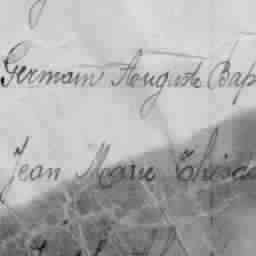 Germain Auguste Bap
Jean Marie